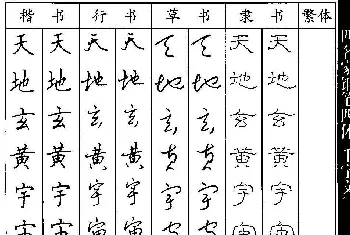 楷 书 行 书 草 书 隶 书 繁体
天 天 天 天 天 天 天 天
地 地 地 地 地 地 地 地
玄 玄 玄 玄 玄 玄 玄 玄
黄 黄 黄 黄 黄 黄 黄 黄
宇 宇 宇 宇 宇 宇 宇 宇